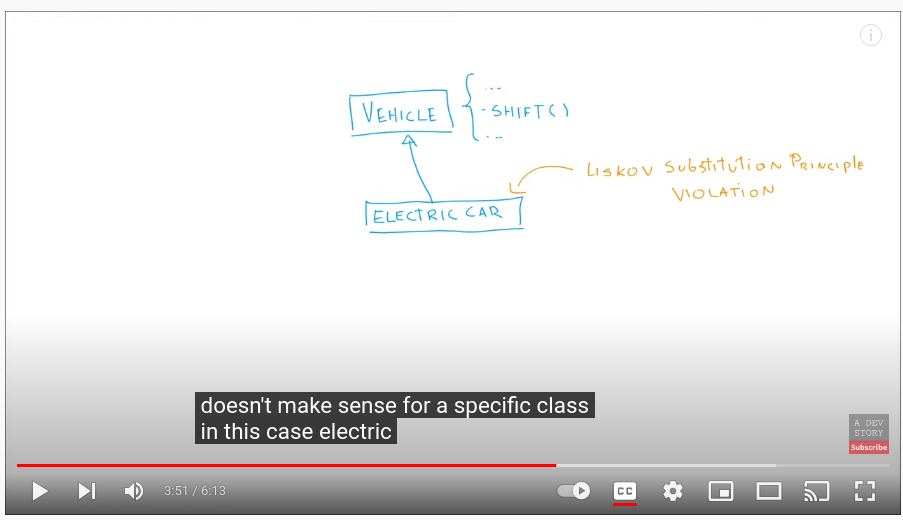 VEHICLE
...
- SHIFT()
...
LISKOV SUBSTITUTION PRINCIPLE
VIOLATION
ELECTRIC CAR
doesn't make sense for a specific class
in this case electric
A DEV
STORY
Subscribe
3:51 / 6:13
CC